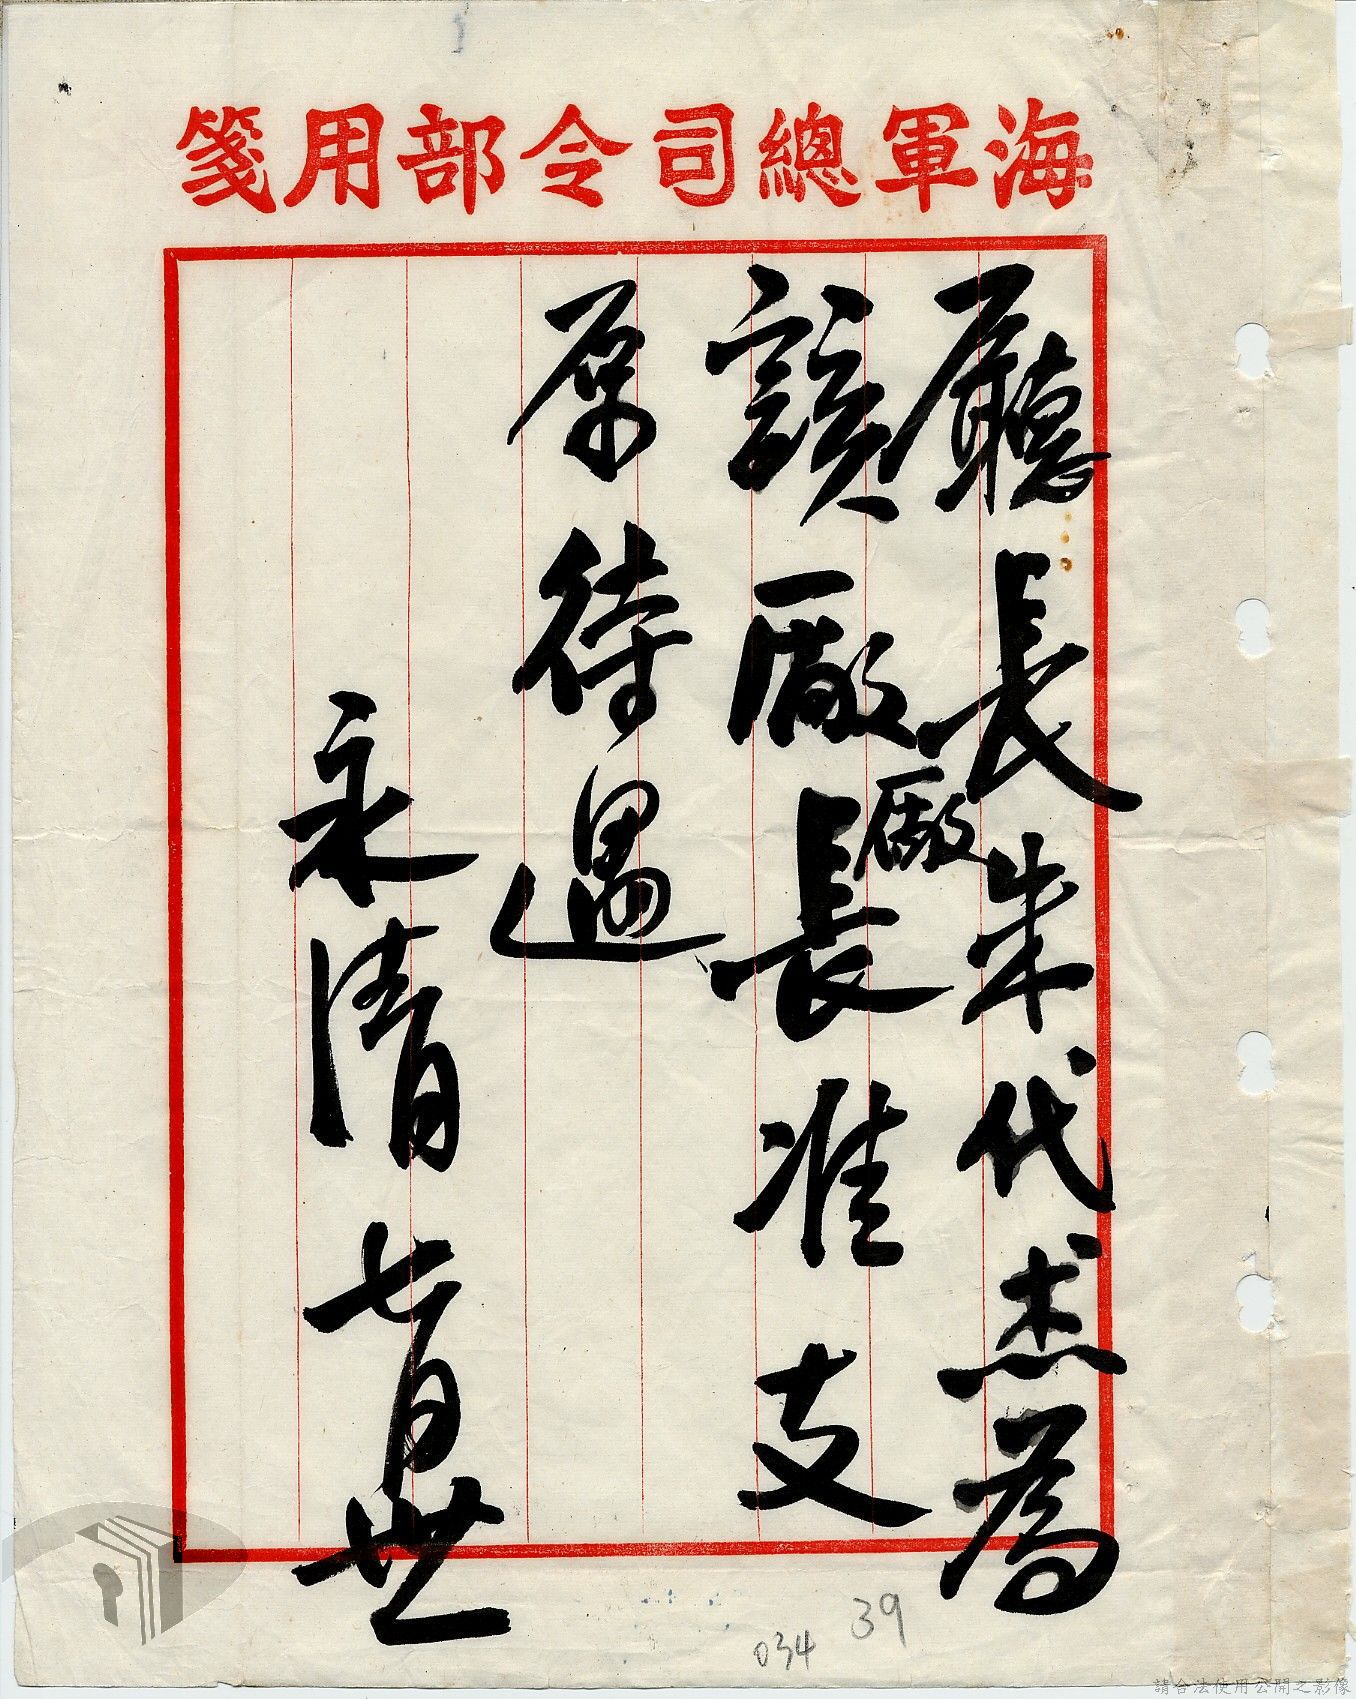 海軍總司令部用箋
廳長朱代杰為
廠
該廠長准支
原待遇
永清 七月卅一
39
034
請合法使用公開之影像